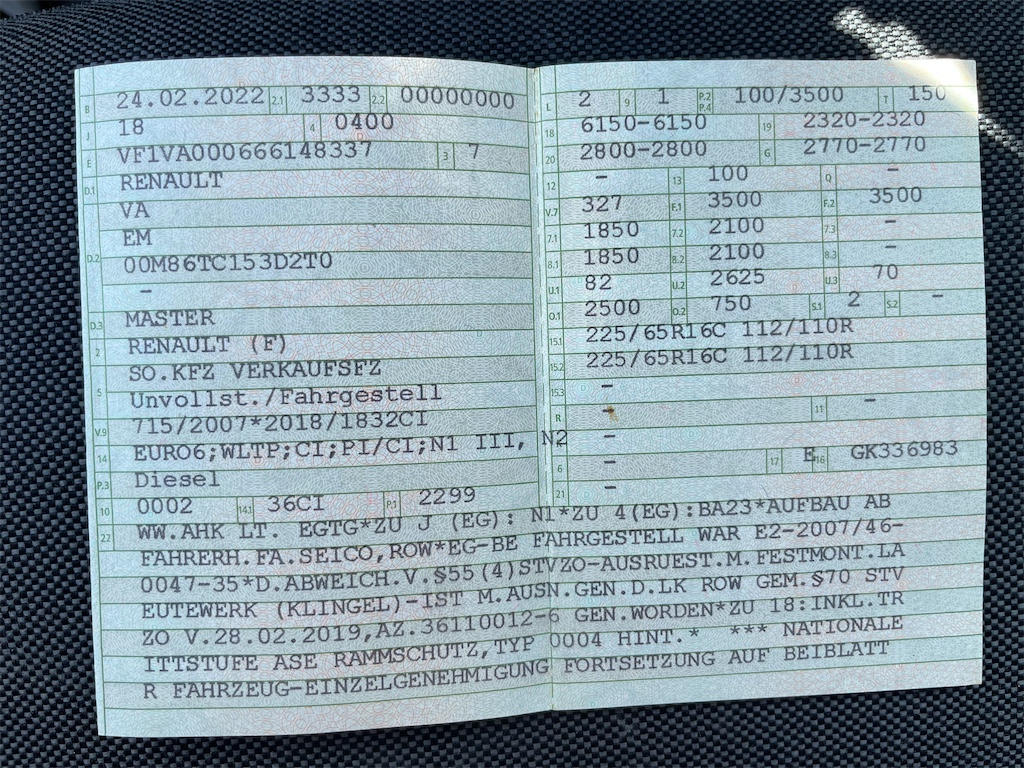 B 24.02.2022 2.1 3333 2.2 00000000
J 18 4 0400
E VF1VA000666148337 3 7
D.1 RENAULT
VA
D.2 EM
00M86TC153D2T0
-
D.3 MASTER
2 RENAULT (F)
SO.KFZ VERKAUFSFZ
5 Unvollst./Fahrgestell
V.9 715/2007*2018/1832CI
14 EURO6;WLTP;CI;PI/CI;N1 III, N2
P.3 Diesel
10 0002 14.1 36CI P.1 2299
L 2 9 1 P.2 P.4 100/3500 T 150
18 6150-6150 19 2320-2320
20 2800-2800 G 2770-2770
12 - 13 100 Q -
V.7 327 F.1 3500 F.2 3500
7.1 1850 7.2 2100 7.3 -
8.1 1850 8.2 2100 8.3 -
U.1 82 U.2 2625 U.3 70
O.1 2500 O.2 750 S.1 2 S.2 -
15.1 225/65R16C 112/110R
15.2 225/65R16C 112/110R
15.3 -
R - 11 -
-
6 - 17 E 16 GK336983
21 -
22 WW.AHK LT. EGTG*ZU J (EG): N1*ZU 4(EG):BA23*AUFBAU AB
FAHRERH.FA.SEICO,ROW*EG-BE FAHRGESTELL WAR E2-2007/46-
0047-35*D.ABWEICH.V.§55(4)STVZO-AUSRUEST.M.FESTMONT.LA
EUTEWERK (KLINGEL)-IST M.AUSN.GEN.D.LK ROW GEM.§70 STV
ZO V.28.02.2019,AZ.36110012-6 GEN.WORDEN*ZU 18:INKL.TR
ITTSTUFE ASE RAMMSCHUTZ,TYP 0004 HINT.* *** NATIONALE
R FAHRZEUG-EINZELGENEHMIGUNG FORTSETZUNG AUF BEIBLATT